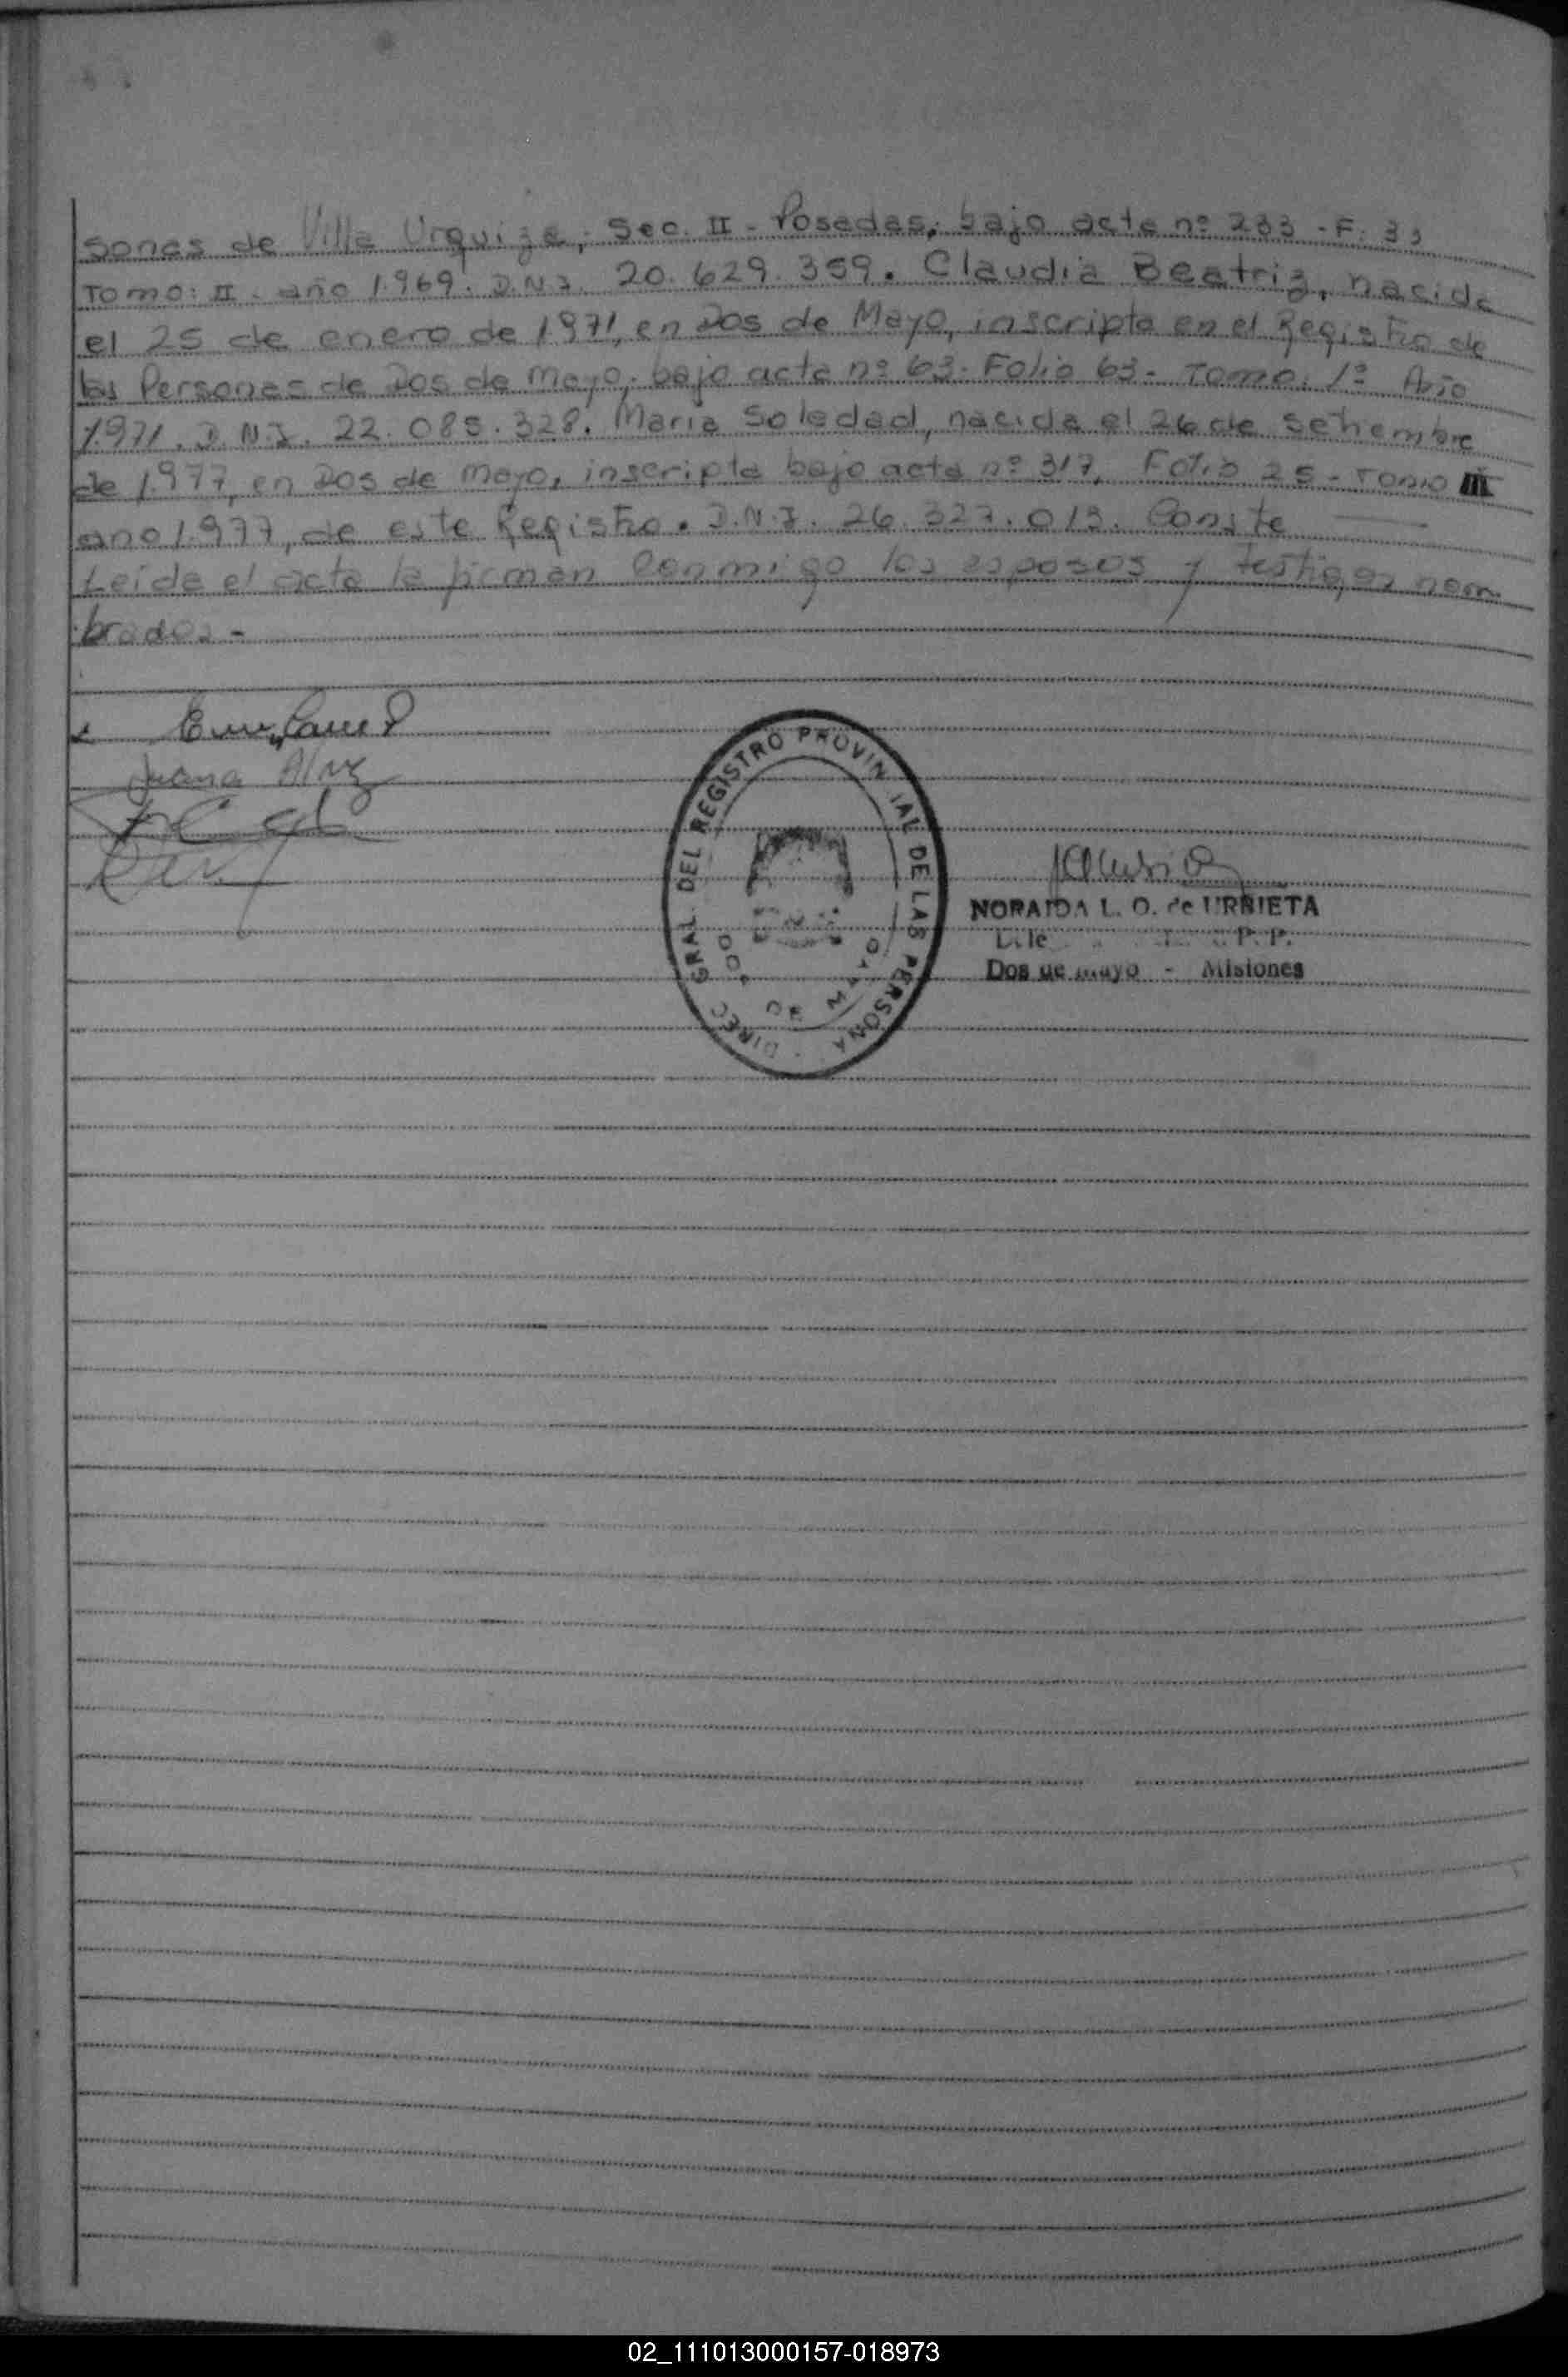 sonas de Villa Urquiza, Sec. II - Posadas, bajo acta nº 233 - F: 33
Tomo: II - año 1.969. D.N.I. 20.629.359. Claudia Beatriz, nacida
el 25 de enero de 1.971, en Dos de Mayo, inscripta en el Registro de
las Personas de Dos de Mayo, bajo acta nº 63. Folio 63 - Tomo: 1º Año
1.971. D.N.I. 22.085.328. Maria Soledad, nacida el 26 de setiembre
de 1.977, en Dos de Mayo, inscripta bajo acta nº 317, Folio 25 - Tomo III
año 1.977, de este Registro. D.N.I. 26.327.013. Conste
Leida el acta la firman conmigo los esposos y testigos nom
brados -
Juana
DIREC GRAL. DEL REGISTRO PROVIN IAL DE LAS PERSONA
DOS DE MAYO
NORAIDA L. O. de URRIETA
Dos de Mayo - Misiones
02_111013000157-018973